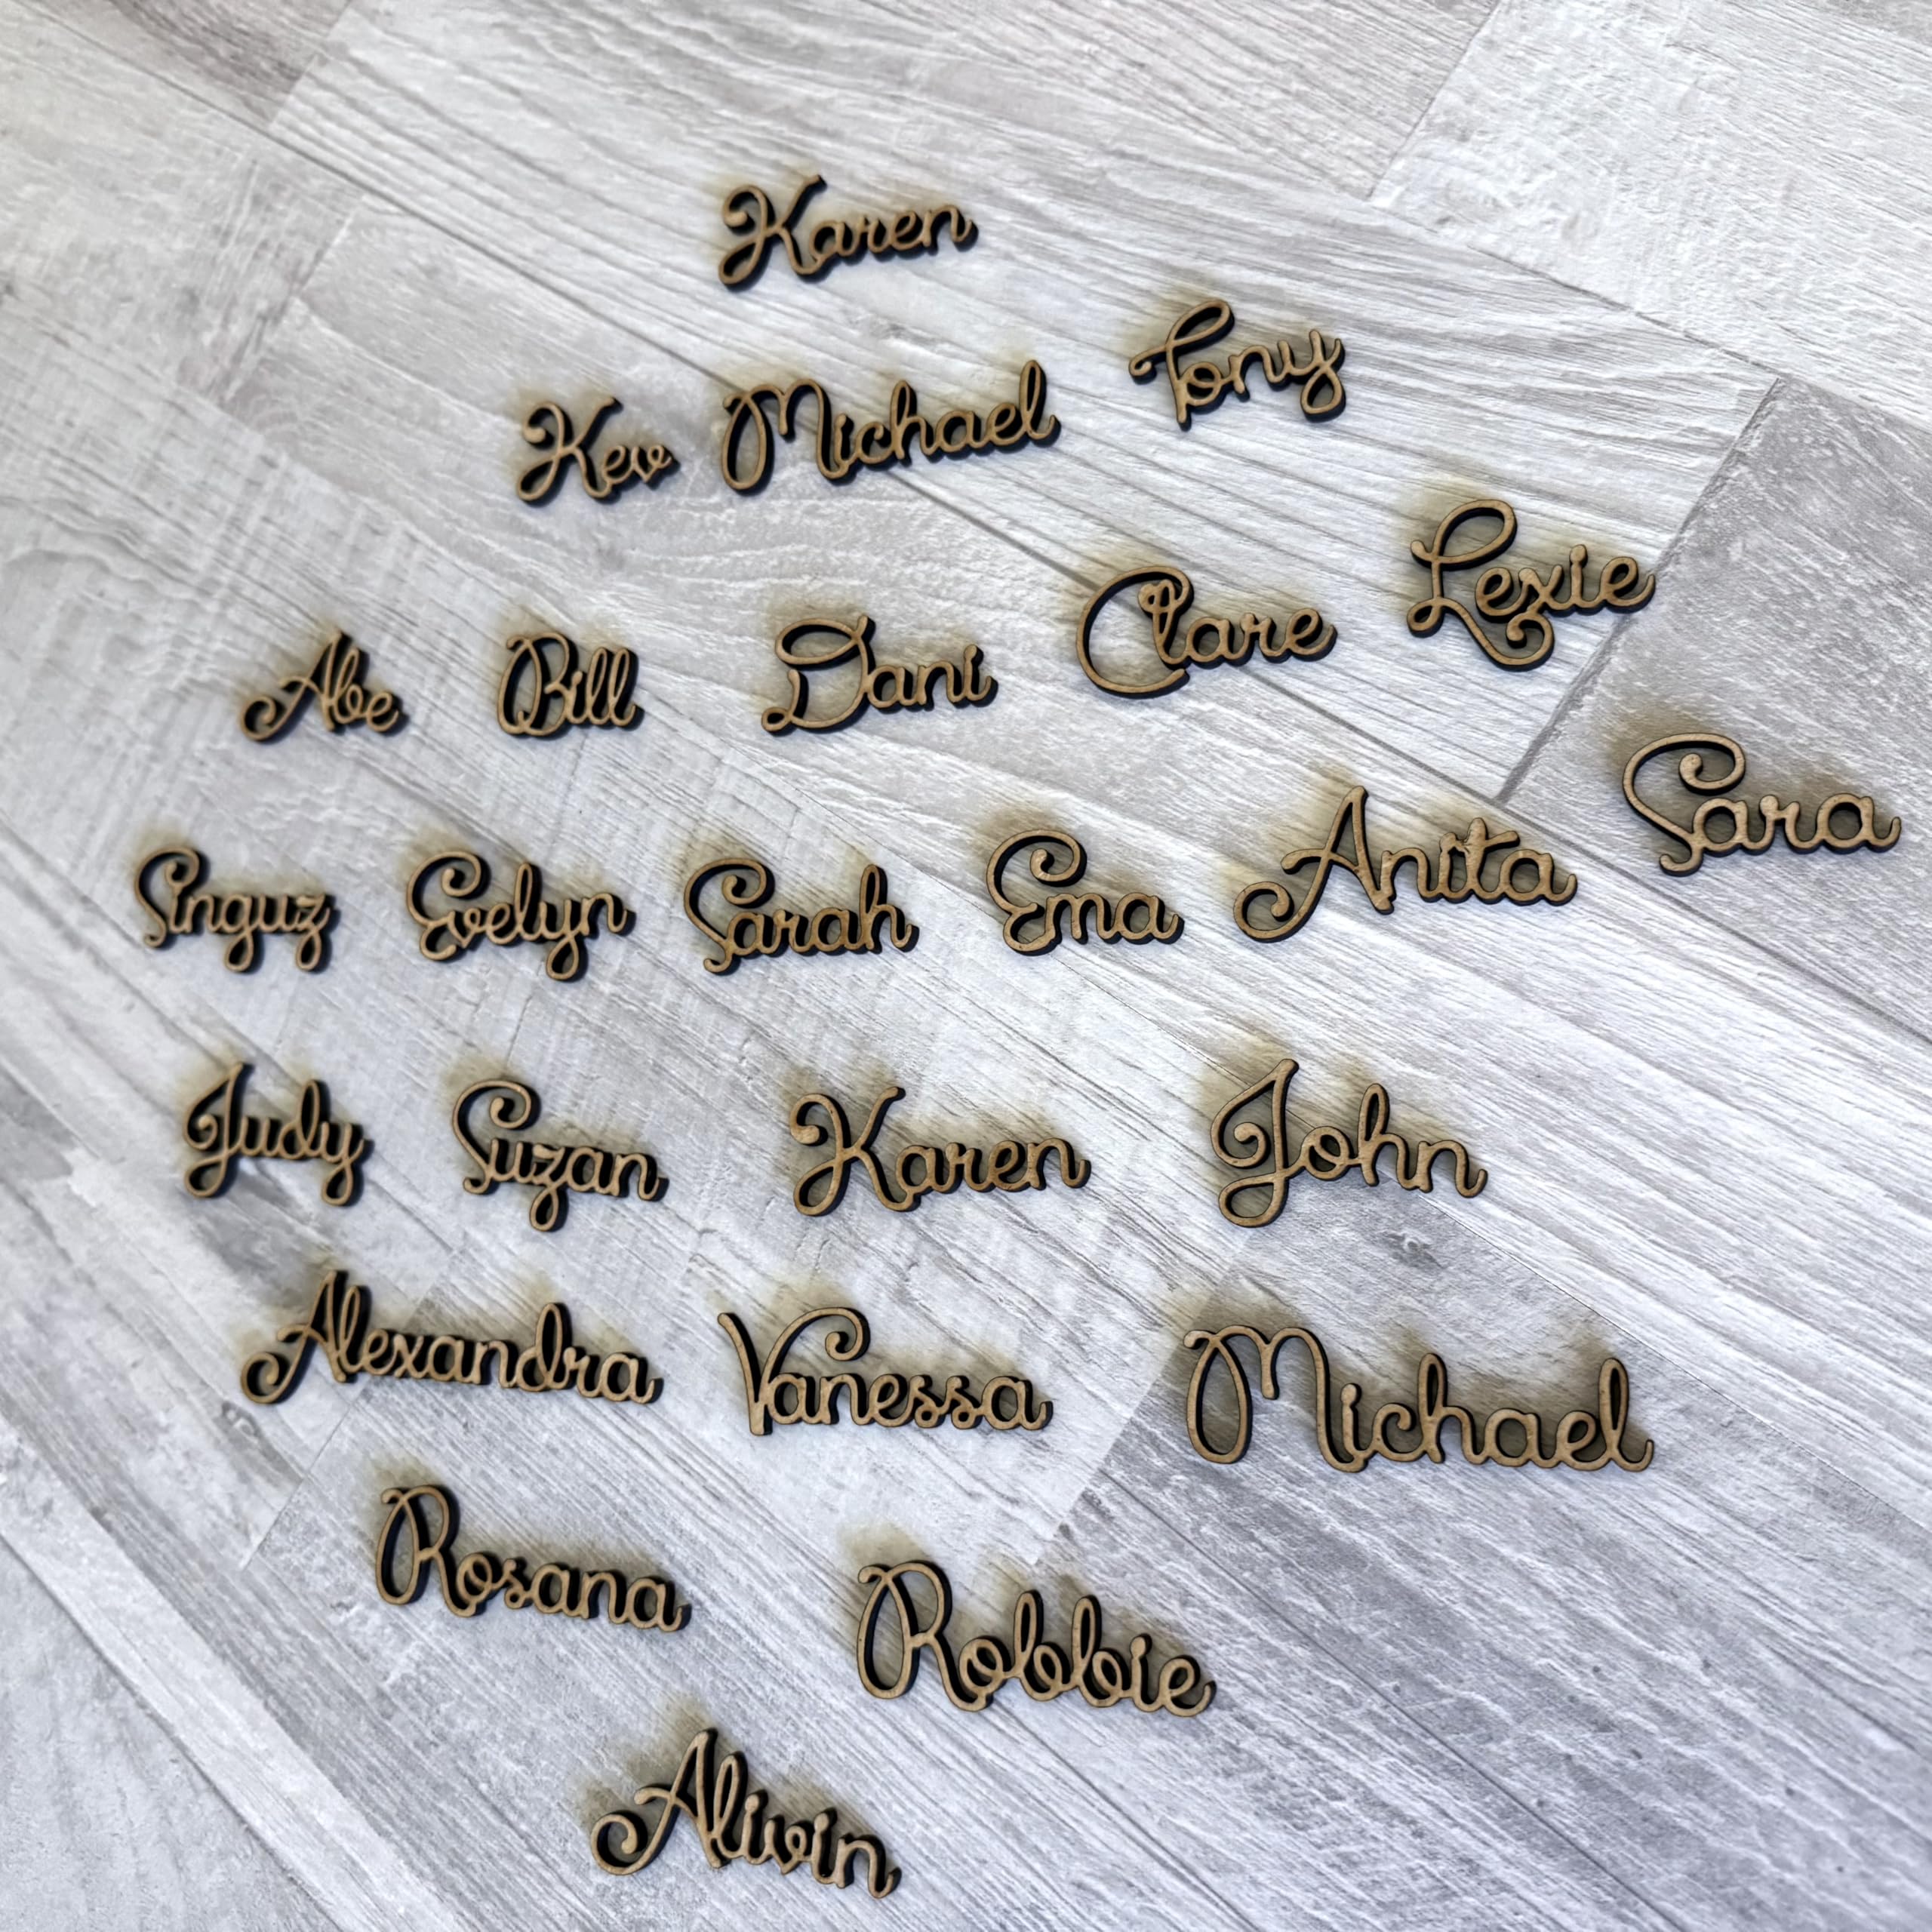 Karen
Tony
Kev Michael
Lexie
Abe Bill Dani Clare
Sara
Singuz Evelyn Sarah Ema Anita
Judy Suzan Karen John
Alexandra Vanessa Michael
Rosana Robbie
Alivin